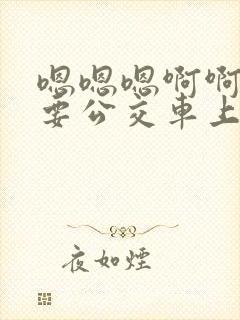 嗯嗯嗯啊啊
要公交車上
夜如煙